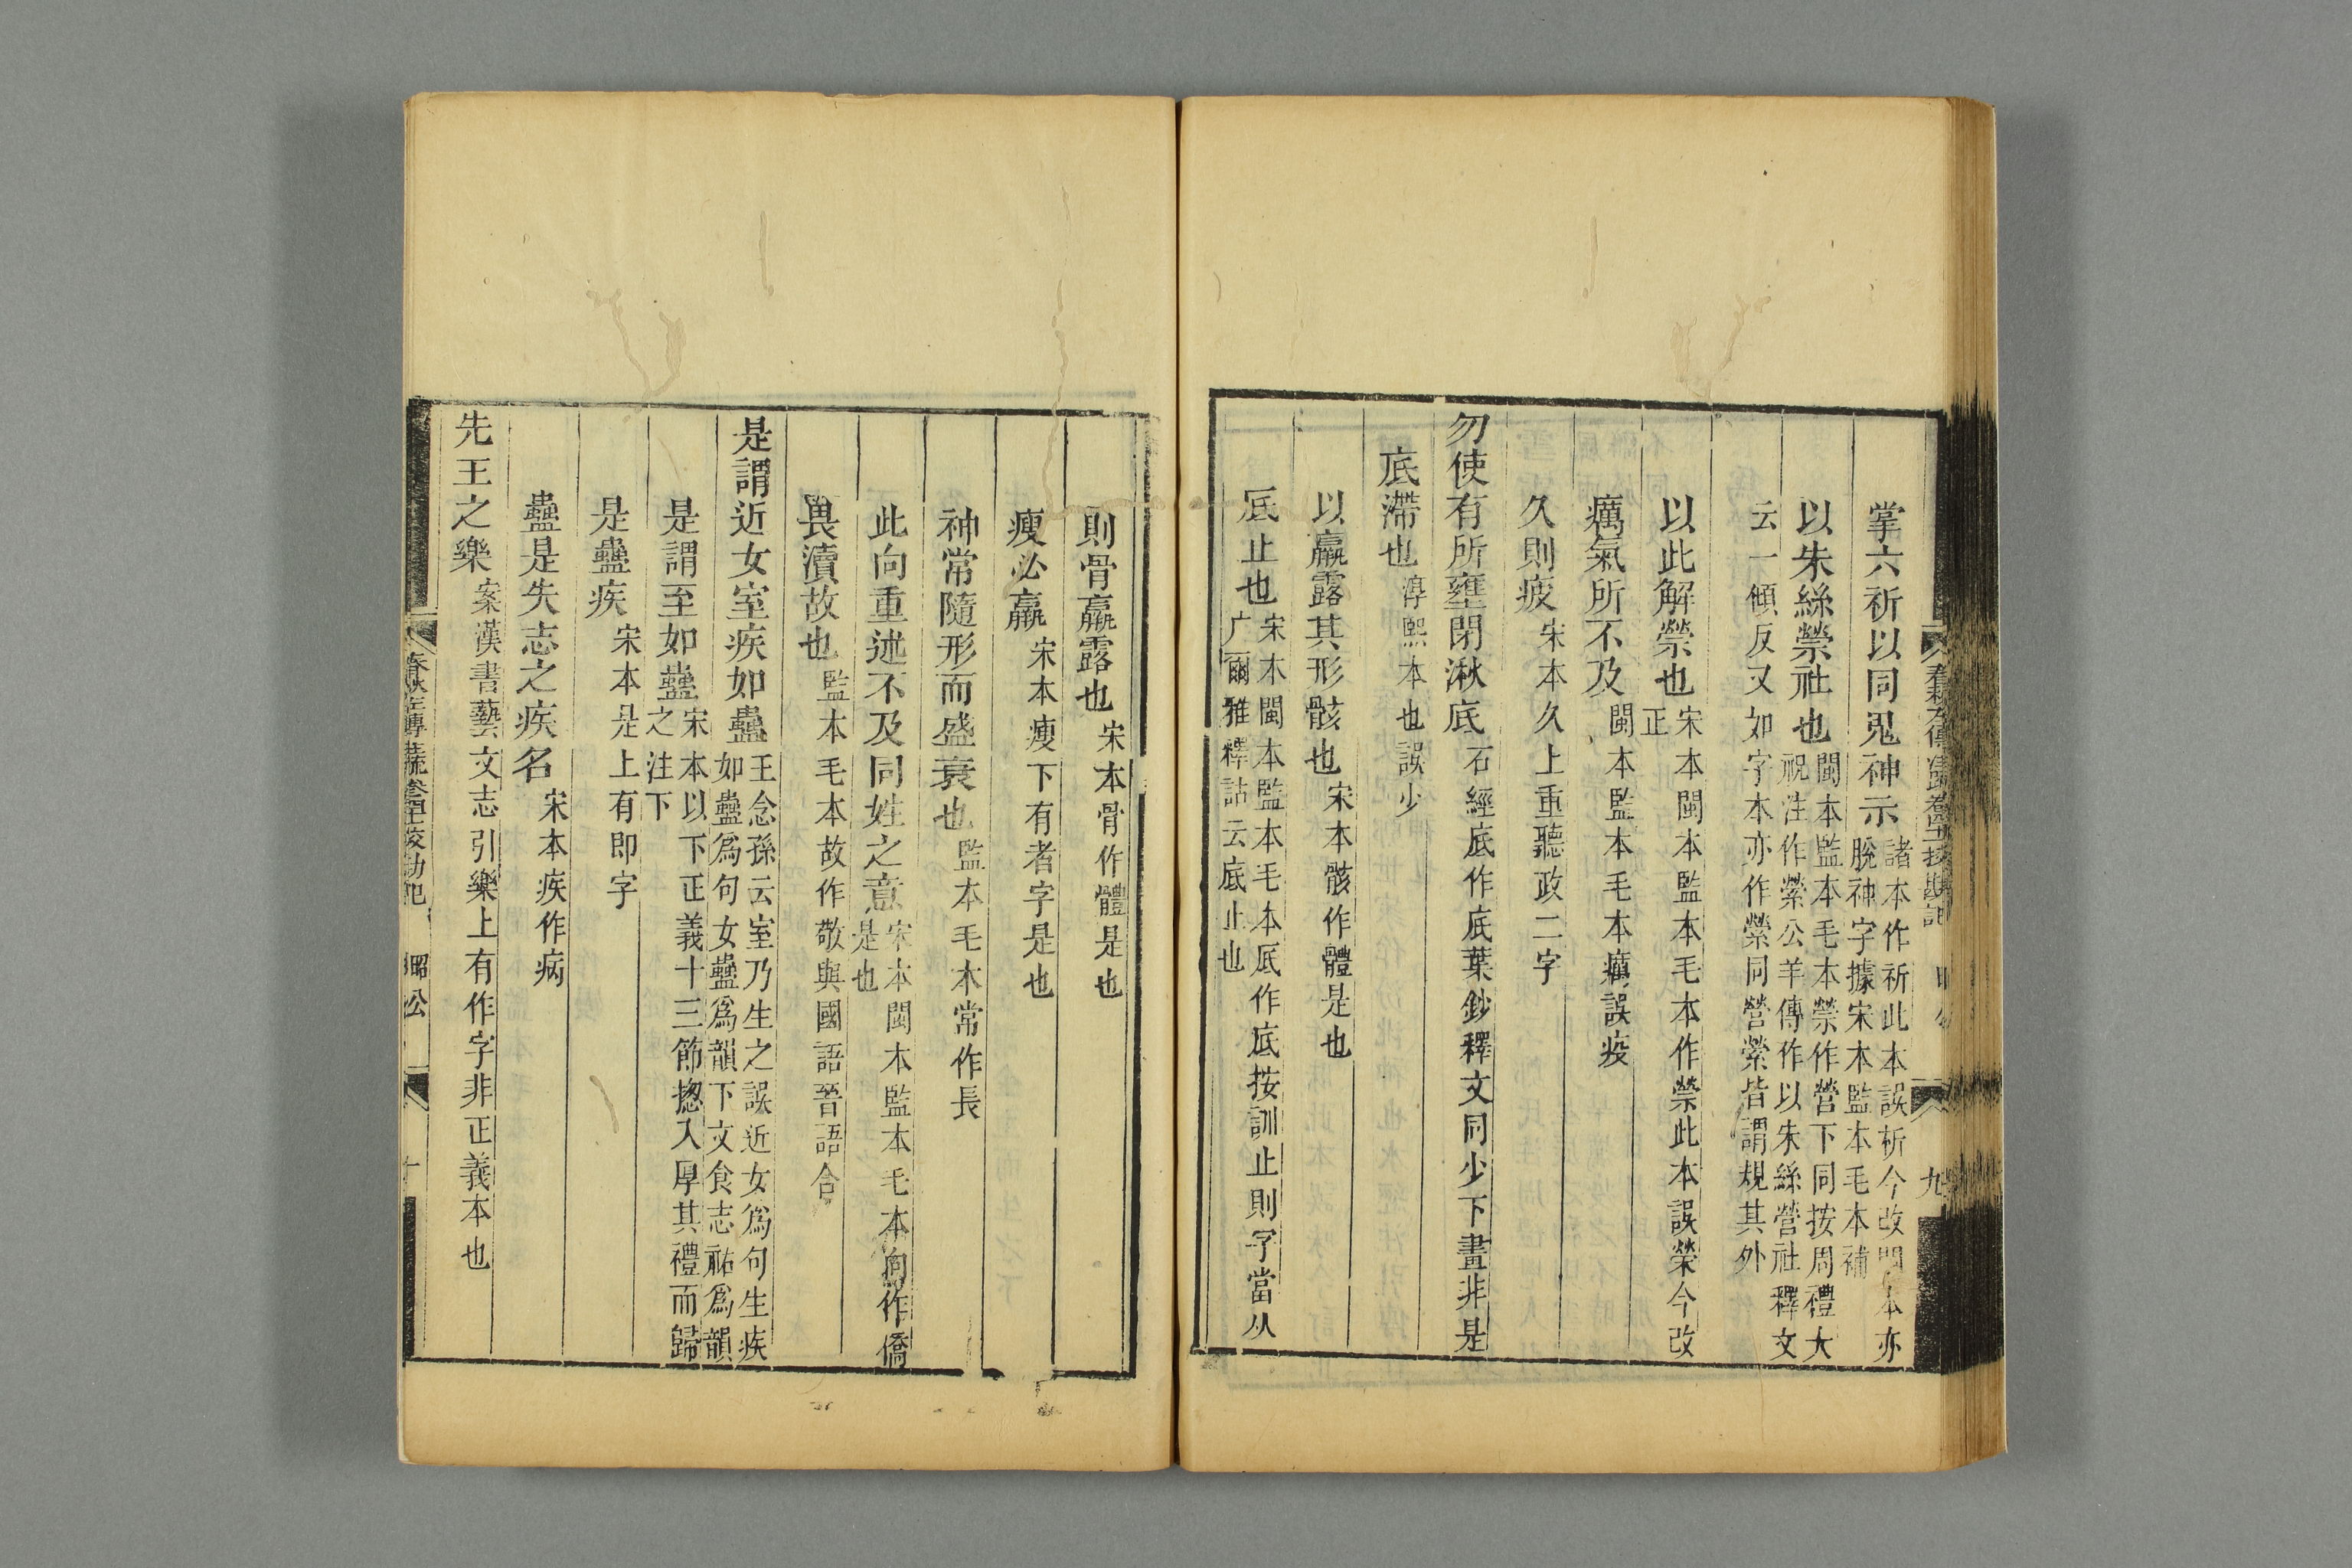 掌六祈以同鬼神示 諸本作祈此本誤析今改閩本亦
脫神字據宋本監本毛本補
以朱絲禜社也 閩本監本毛本禜作營下同按周禮大
祝注作縈公羊傳作以朱絲營社釋文
云一傾反又如字本亦作縈同營縈皆謂規其外
以此解禜也 宋本閩本監本毛本作禜此本誤榮今改
正
癘氣所不及 閩本監本毛本癘誤疫
久則疲 宋本久上重聽政二字
勿使有所壅閉湫底 石經底作厎葉鈔釋文同少下畫非是
底滯也 淳熙本也誤少
以羸露其形骸也 宋本骸作體是也
厎止也 宋本閩本監本毛本厎作底按訓止則字當从
广爾雅釋詁云底止也
春秋左傳注疏卷四十一校勘記 昭公 九
則骨羸露也 宋本骨作體是也
瘦必羸 宋本瘦下有者字是也
神常隨形而盛衰也 監本毛本常作長
此向重述不及同姓之意 宋本閩本監本毛本向作僑
是也
畏瀆故也 監本毛本故作敬與國語晉語合
是謂近女室疾如蠱 王念孫云室乃生之誤近女爲句生疾
如蠱爲句女蠱爲韻下文食志祐爲韻
是謂至如蠱 宋本以下正義十三節揔入厚其禮而歸
之注下
是蠱疾 宋本是上有即字
蠱是失志之疾名 宋本疾作病
先王之樂 案漢書藝文志引樂上有作字非正義本也
春秋左傳注疏卷四十一校勘記 昭公 十